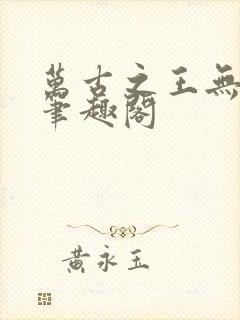 萬古之王無
筆趣閣
黃永玉